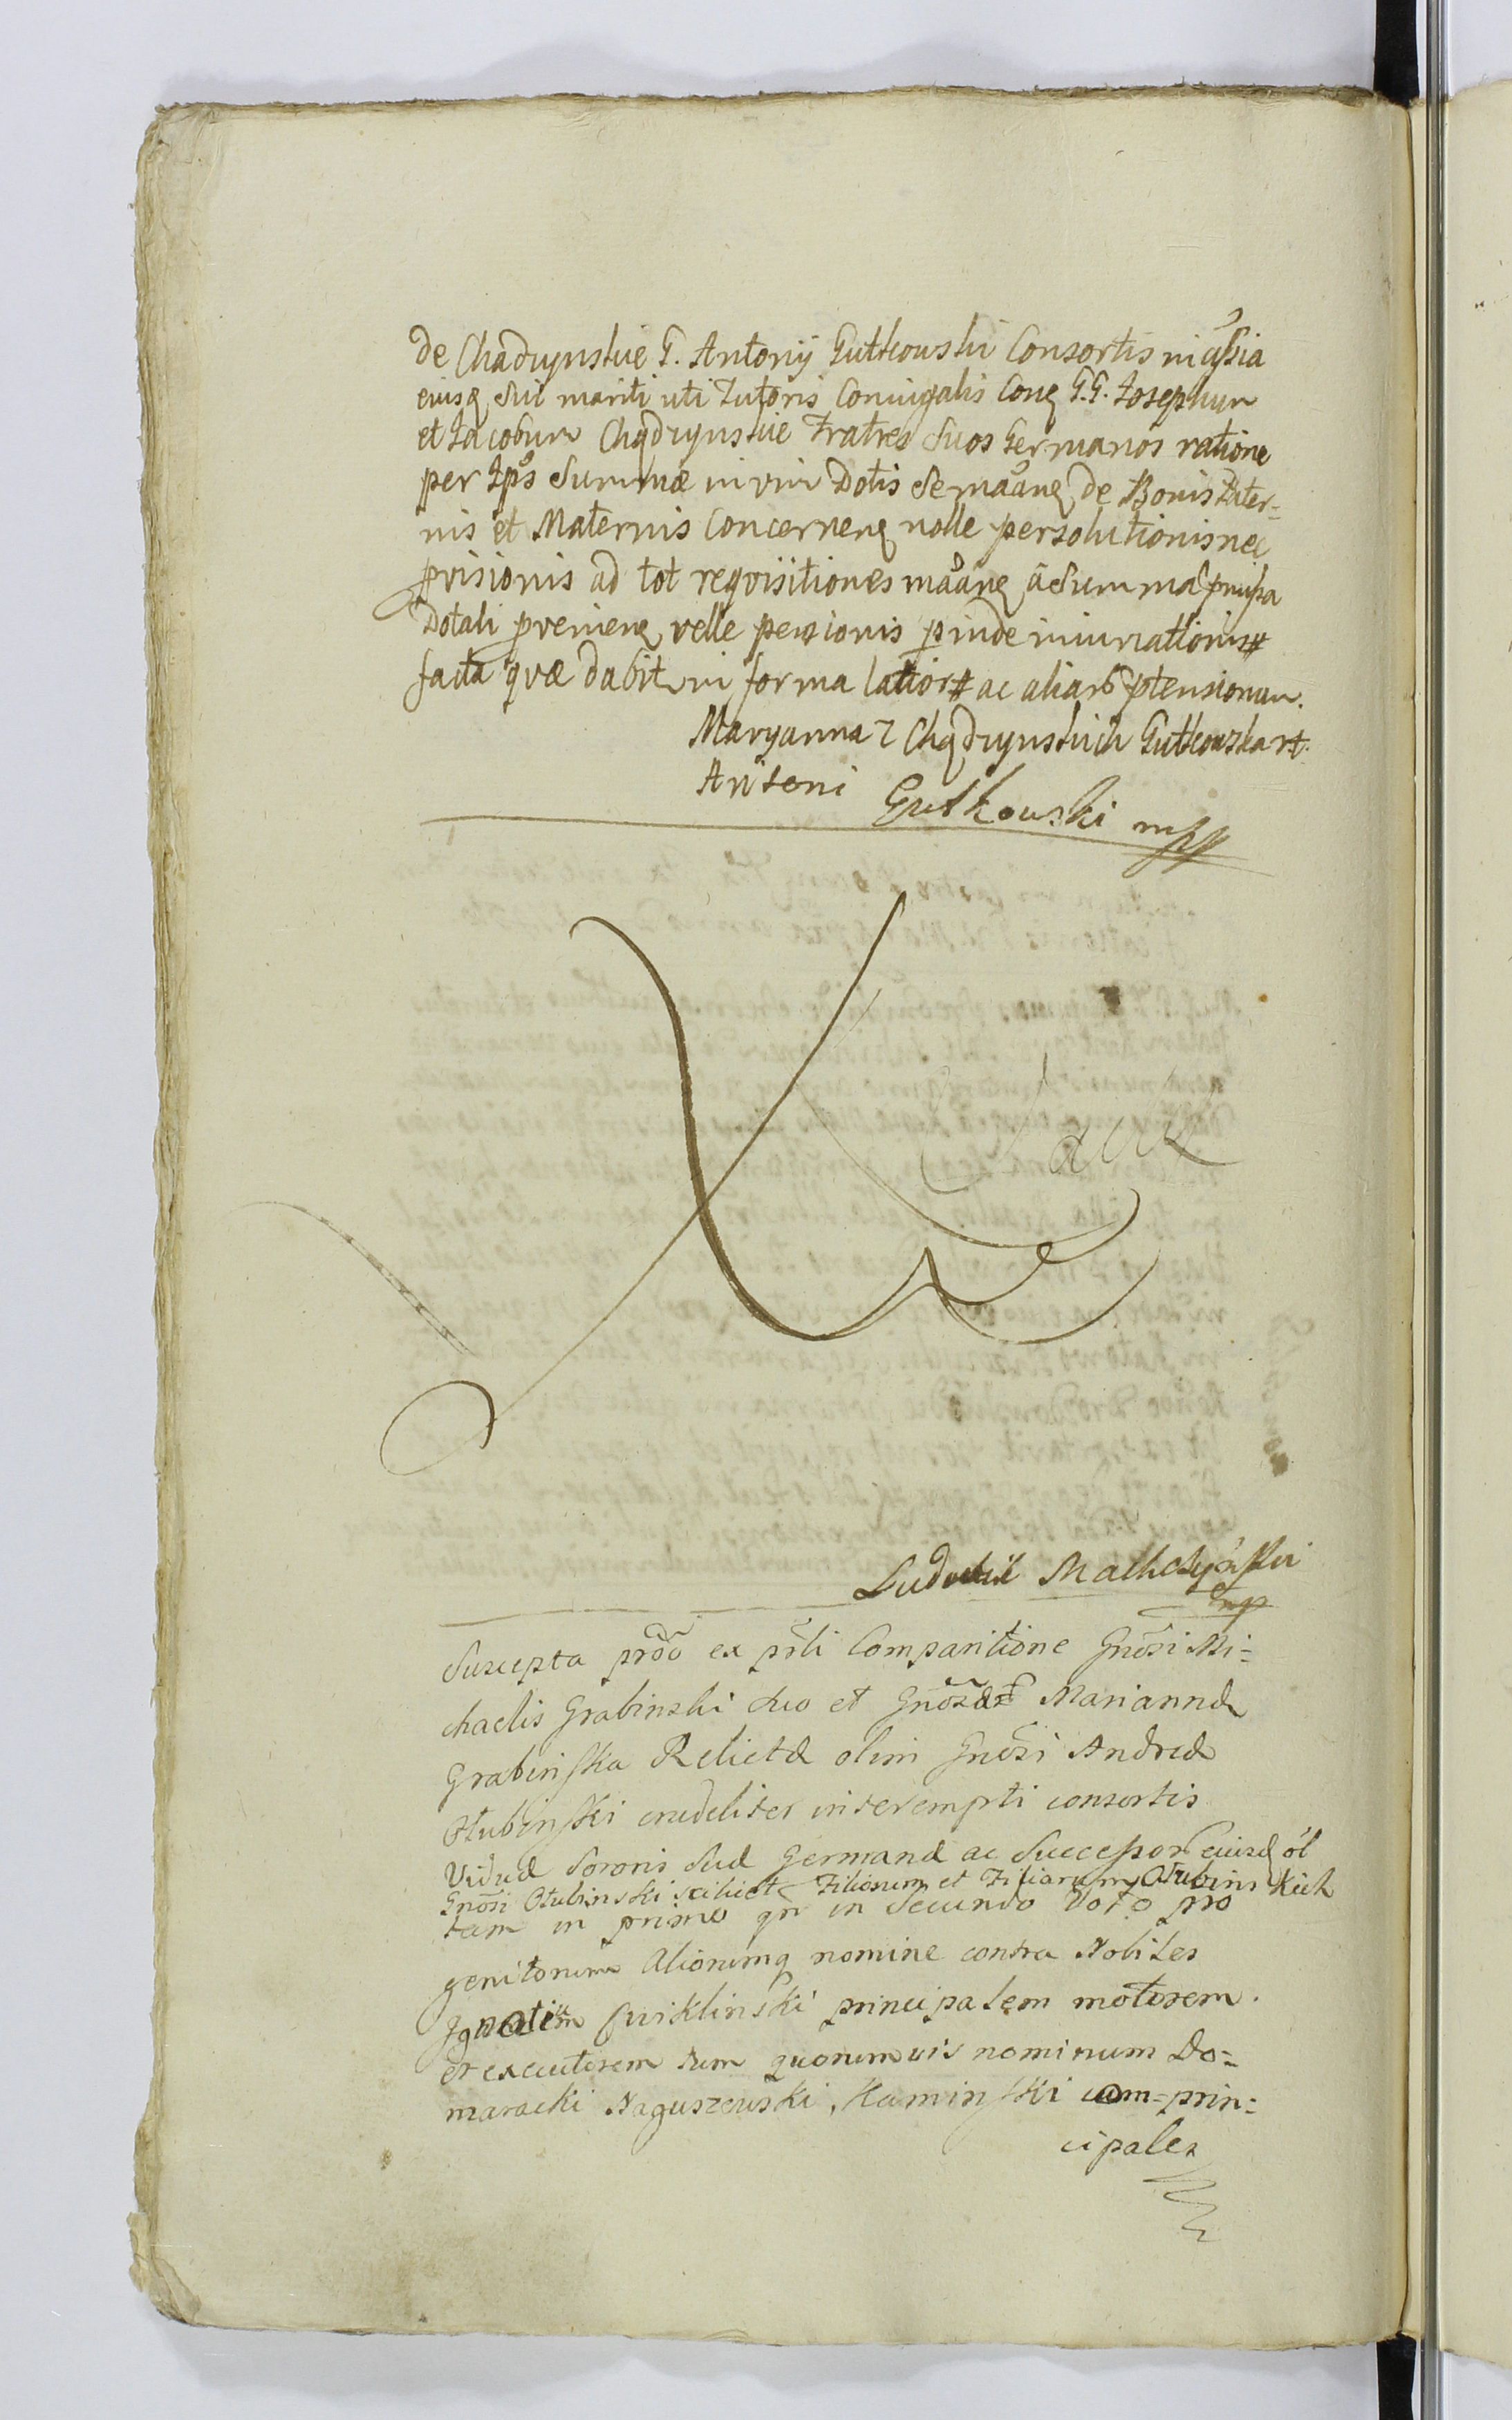 de Chądzynskie G. Antonij Gutkowski Consortis in assia
eiusq sui mariti uti Tutoris Coniugalis Conq G.G. Josephum
et Jacobum Chądzynskie Fratres Suos Germanos ratione
per Ipos Summæ in vim Dotis Se maanq de Bonis Pater-
nis et Maternis Concernenq nolle persolutionis nec
provisionis ad tot requisitiones maanq a Summa pmissa
Dotali provenienq velle pensionis pinde iniuriationis
facta quæ dabit in forma latior ac aliarũ ptensionum.
Maryanna z Chądzynskich Gutkowska
Antoni Gutkowski mpp
Ludwik Mathczynski
mp
Suscepta proõ ex prli Comparitione Gnosi Mi-
chaelis Grabinski suo et Gnosæ Mariannæ
Grabinska Relictæ olim Gnosi Andreæ
Otubinski crudeliter interempti consortis
Viduæ Sororis Suæ Germanæ ac Successor eiusd ol
Gnosi Otubinski scilicet Filiorum et Filiarum Otubinskich
tam in primo qm in Secundo Voto pro
genitorum Aliorumq nomine contra Nobiles
Ignatium Cwiklinski principalem motorem.
et executorem tum quorumvis nominum Do-
maracki Naguszewski, Kaminski com-prin-
cipales